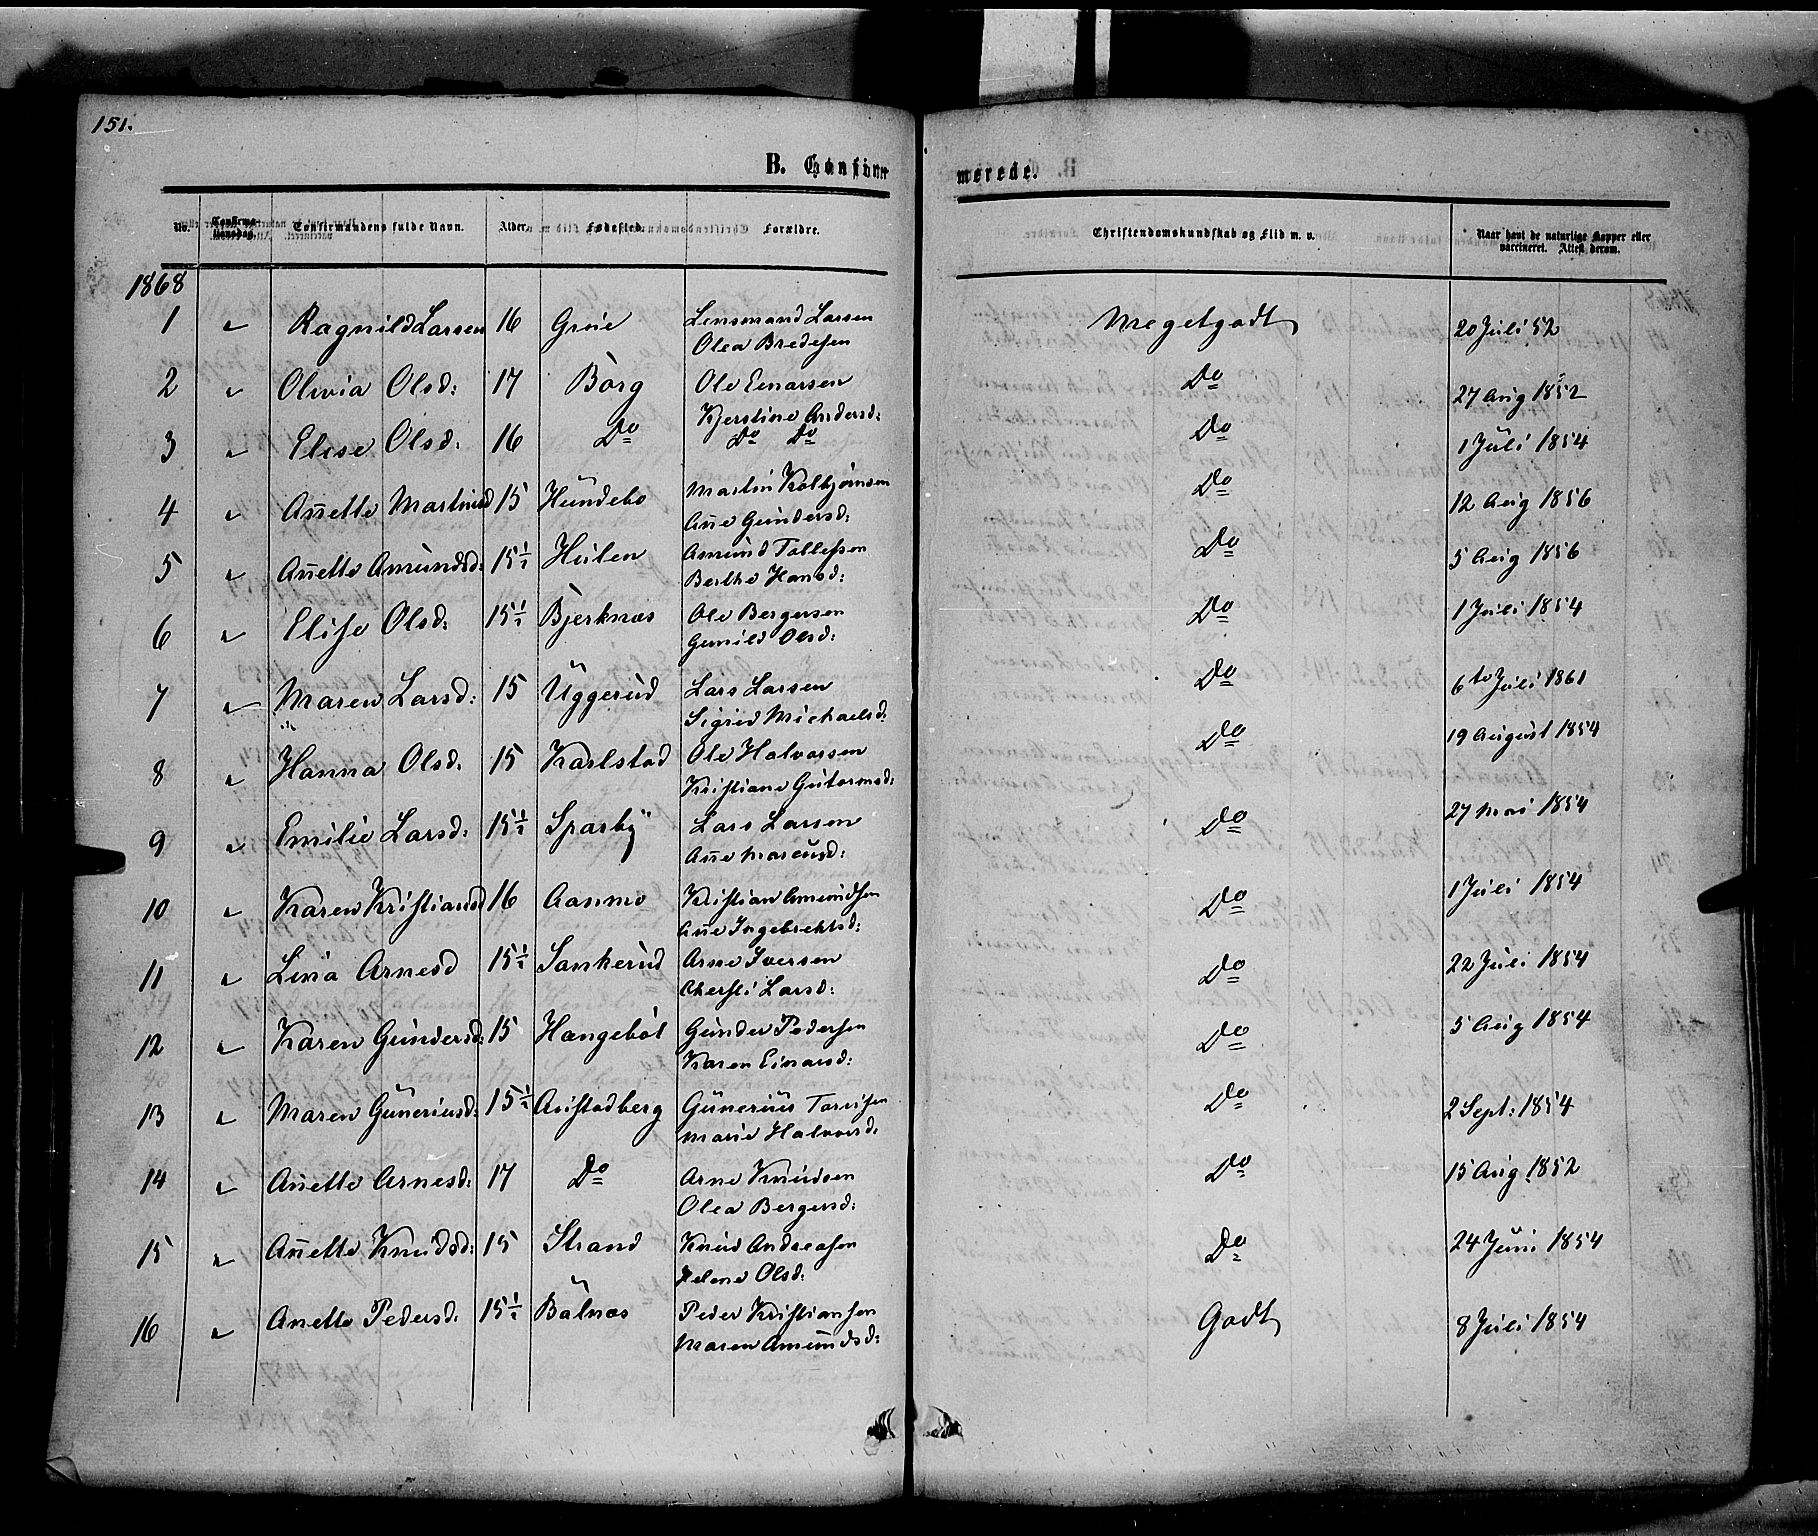 151.
B. Confirmerede.
No. Confirmationsdag. Confirmandens fulde Navn. Alder. Fødested. Forældre. Christendomskundskab og Flid m. v. Naar havt de naturlige Kopper eller vaccineret. Attest derom.
1868
1 " Ragnild Larsen 16 Grue Lensmand Larsen Meget godt 20 Juli 52
Olea Bredesen
2 " Olivia Olsd: 17 Borg Ole Einarsen Do 27 Aug 1852
Kjerstine Andersd:
3 " Elise Olsd: 16 Do Do Do Do 1 Juli 1854
4 " Anette Martinsd 15 Hundebo Martin Kolbjørnsen Do 12 Aug 1856
Ane Gundersd:
5 " Anette Amundsd: 15½ Hulen Amund Tollefsen Do 5 Aug 1856
Berthe Hansd:
6 " Elise Olsd: 15½ Bjerknæs Ole Bergersen Do 1 Juli 1854
Gunild Olsd:
7 " Maren Larsd: 15 Uggerud Lars Larsen Do 6te Juli 1861
Sigrid Michaelsd:
8 " Hanna Olsd. 15 Karlstad Ole Halvorsen Do 19 August 1854
Kristiane Gutormsd:
9 " Emilie Larsd: 15½ Sparby Lars Larsen Do 27 Mai 1854
Ane Marcusd:
10 " Karen Kristiansd 16 Aanmo Kristian Amundsen Do 1 Juli 1854
Ane Ingebrektsd:
11 " Lina Arnesd 15½ Sankerud Arne Iversen Do 22 Juli 1854
Chersti Larsd:
12 " Karen Gundersd: 15 Hangebøl Gunder Pedersen Do 5 Aug 1854
Karen Einarsd:
13 " Maren Guneriusd: 15½ Austadberg Gunerius Do 2 Sept: 1854
Marie Halvorsd.
14 " Anette Arnesd: 17 Do Arne Knudsen Do 15 Aug 1852
Olea Bergersd:
15 " Anette Knudsd: 15 Strand Knud Andreasen Do 24 Juni 1854
Helene Olsd:
16 " Anette Pedersd. 15½ Bulnæs Peder Kristiansen Godt 8 Juli 1854
Maren Amundsd: